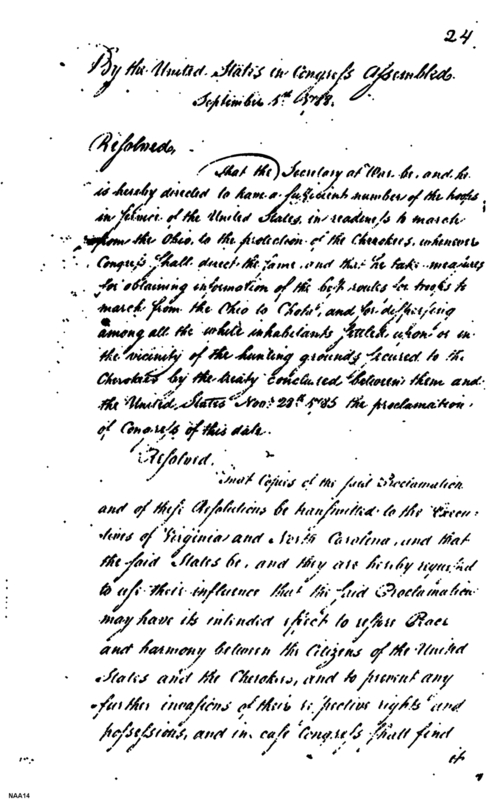 24
By the United States in Congress Assembled.
September 1st 1788.
Resolved,
That the Secretary at War be, and he
is hereby directed to have a sufficient number of the troops
in service of the United States, in readiness to march
from the Ohio, to the protection of the Cherokees, whenever
Congress shall direct the same, and that he take measures
for obtaining information of the best routes for troops to
march from the Ohio to Chota, and for dispersing
among all the white inhabitants settled upon or in
the vicinity of the hunting grounds secured to the
Cherokees by the treaty concluded between them and
the United States Nov. 28th 1785 the proclamation
of Congress of this date.
Resolved.
That Copies of the said Proclamation
and of these Resolutions be transmitted to the Execu-
tives of Virginia and North Carolina, and that
the said States be, and they are hereby requested
to use their influence that the said Proclamation
may have its intended effect to restore Peace
and harmony between the Citizens of the United
States and the Cherokees, and to prevent any
further invasions of their respective rights and
possessions, and in case Congress shall find
it
NAA14